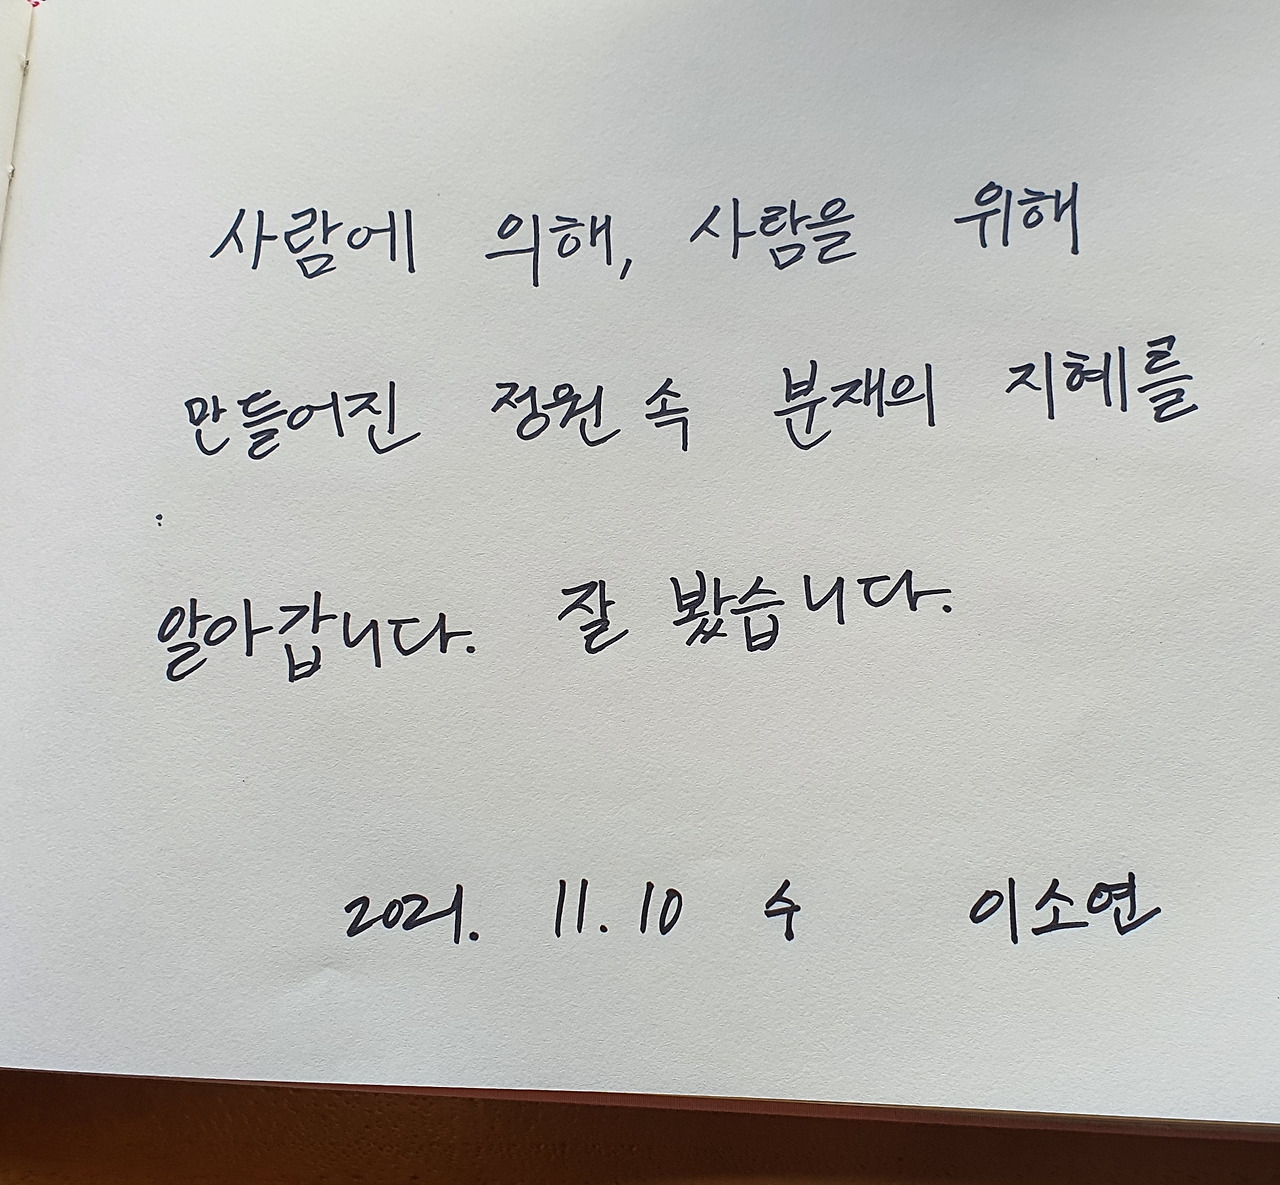 사람에 의해, 사람을 위해
만들어진 정원 속 분재의 지혜를
알아갑니다. 잘 봤습니다.
2021. 11. 10 수 이소연